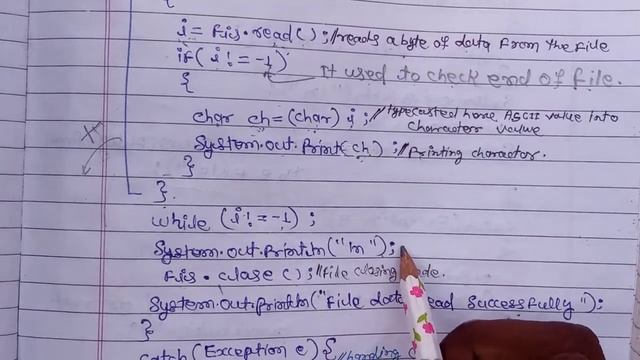 {
i = fis.read( ) ; //reads a byte of data from the file
if( i ! = -1)
It used to check end of file.
{
char ch = (char) i ; //typecasted here ASCII value into
character value
System.out.Print(ch) ; //Printing character.
}
X
}.
while (i ! = -1) ;
System.out.Println("\n");
fis . close ( ) ; //file closing
System.out.Println("File data read successfully");
}
catch (Exception e) {